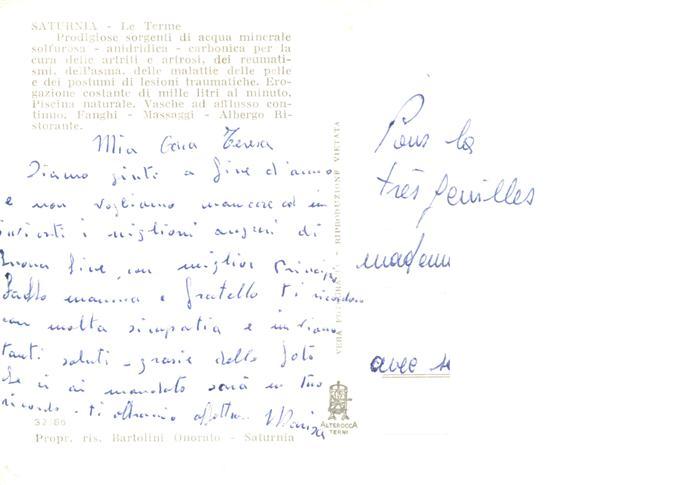 SATURNIA - Le Terme
Prodigiose sorgenti di acqua minerale
solfurosa - anidridica - carbonica per la
cura delle artriti e artrosi, dei reumati-
smi, dell'asma, delle malattie delle pelle
e dei postumi di lesioni traumatiche. Ero-
gazione costante di mille litri al minuto.
Piscina naturale. Vasche ad afflusso con-
tinuo. Fanghi - Massaggi - Albergo Ri-
storante.
Mia Cara Teresa
Siamo giunti a fine d'anno
e non vogliamo mancare ad in
viarti i migliori auguri di
buona fine, con miglior Principio
mamma e fratello ti ricordano
con molta simpatia e inviano
tanti saluti - grazie della foto
che ci ai mandato sarà un tuo
ricordo - ti
Marisa
32-66
Propr. ris. Bartolini Onorato - Saturnia
RIPRODUZIONE VIETATA
ALTEROCCA
TERNI
Pour la
très
madam
avec